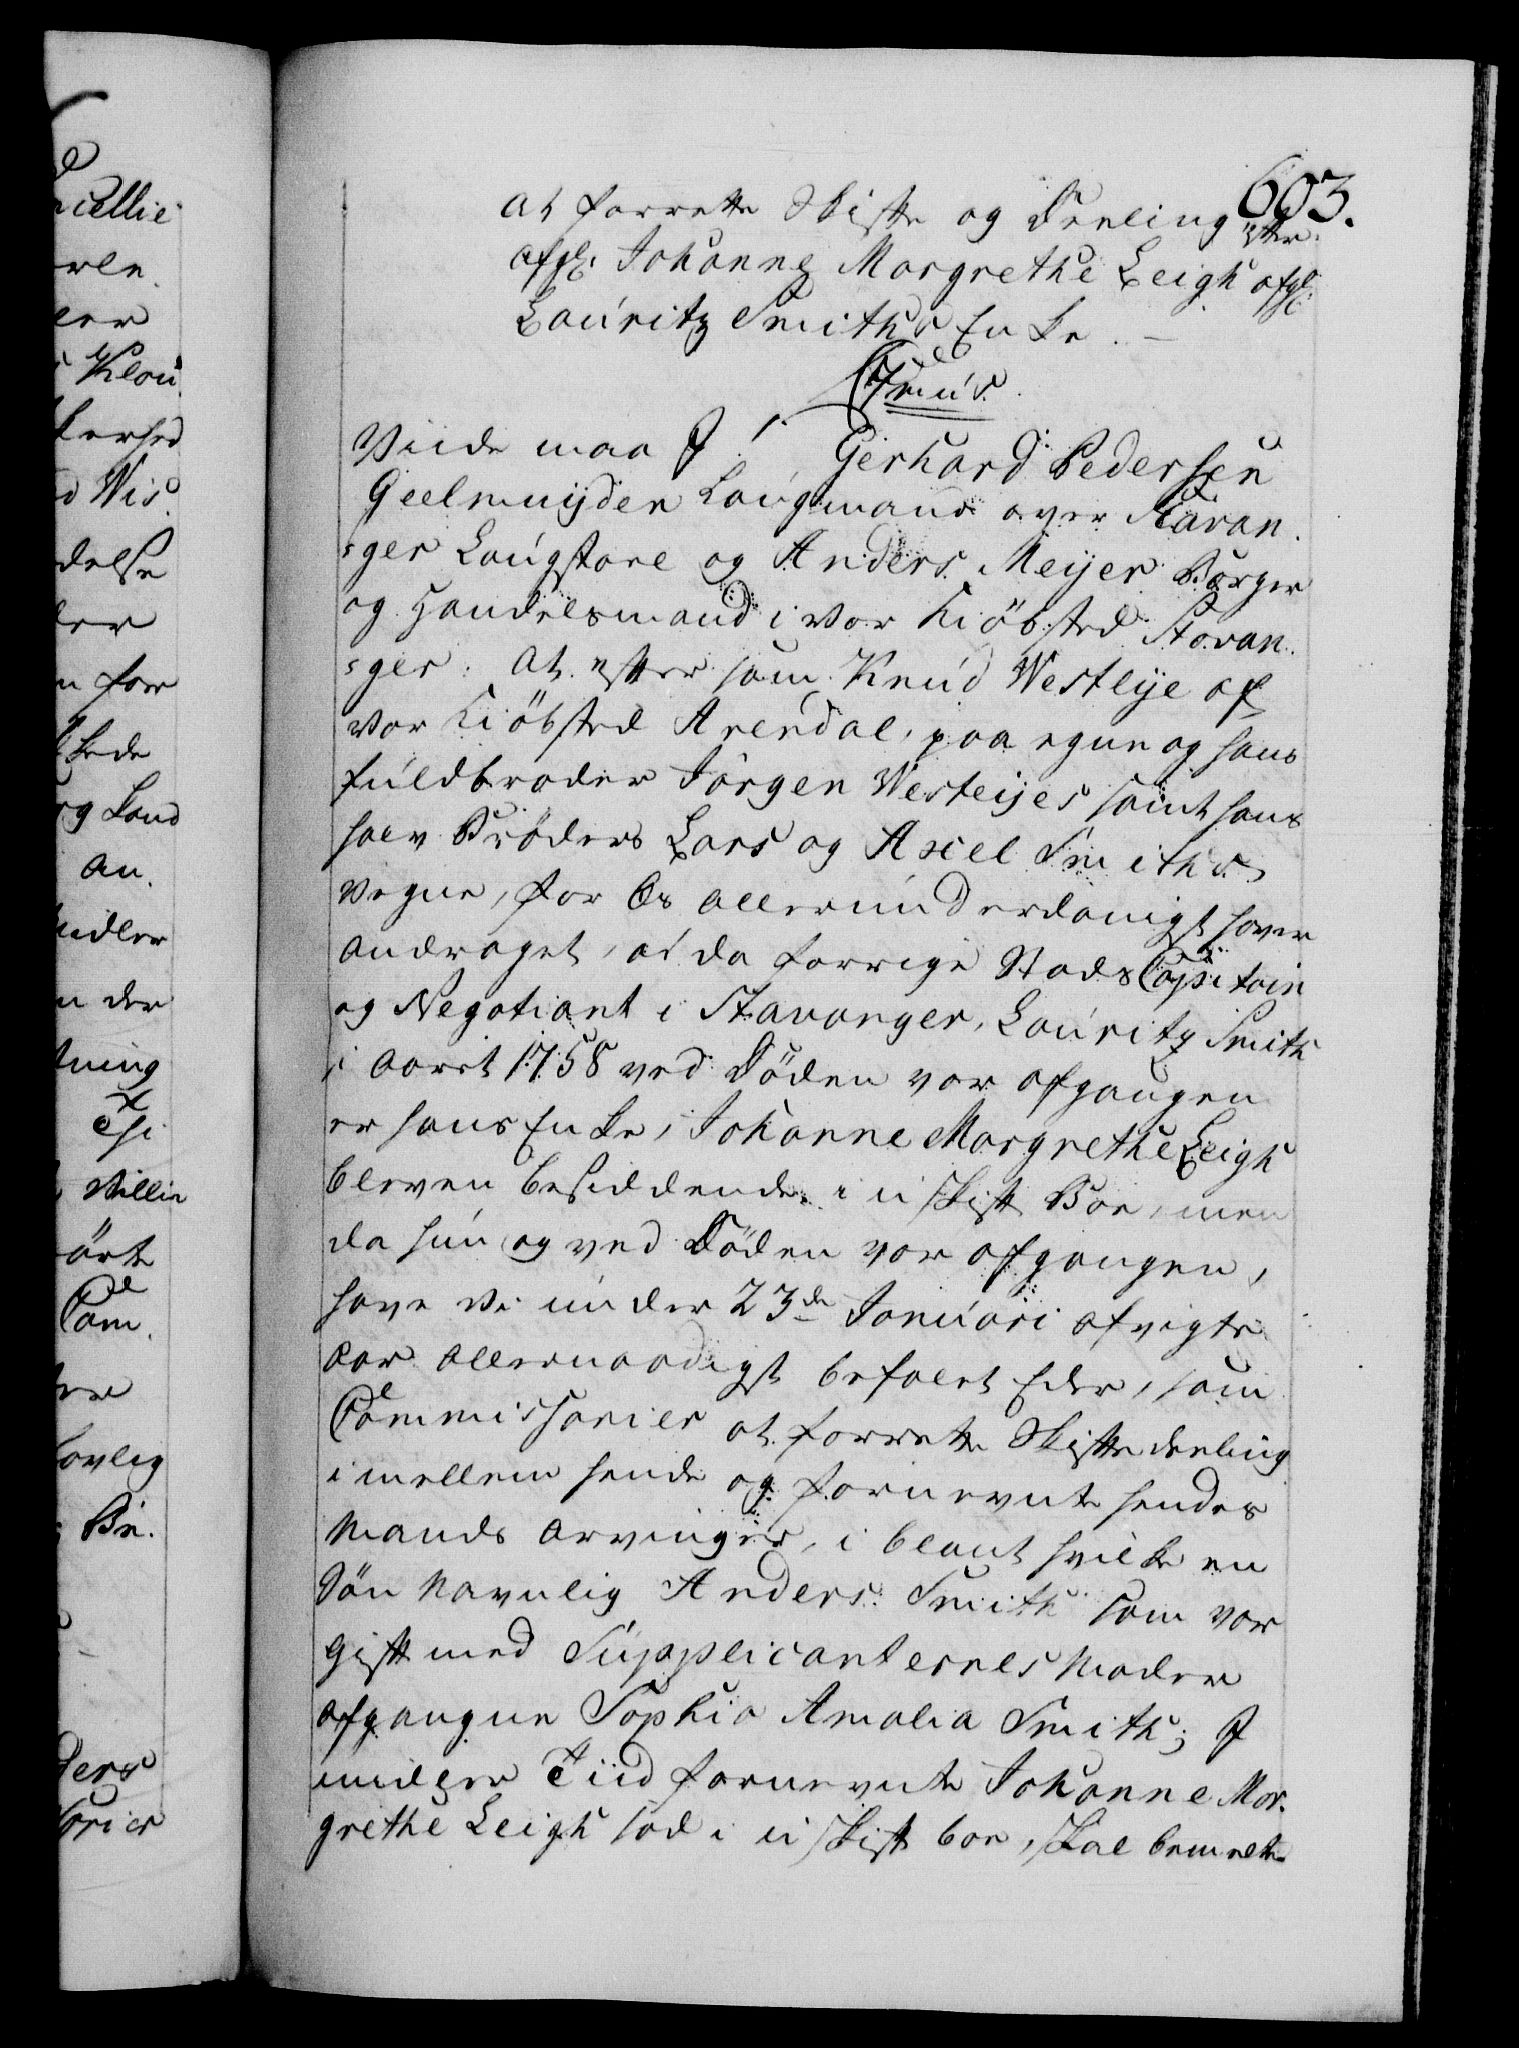 603.
at forrette Skifte og Deeling efter
afg: Johanne Margrethe Leigh afg:
Lauritz Smiths Enke. –
Cfmus.
Viide maa I Gerhard Pedersen
Geelmuijden Laugmand over Stavan-
-ger Laugstoel og Anders Meijer Borger
og Handelsmand i vor Kiöbsted Stavan-
-ger. At eftersom Knud Westlye af
vor Kiöbsted Arendal, paa egne og hans
fuldbroder Jörgen Westeyes samt hans
halv Bröders Lars og Axel Smiths
vegne, for Os allerunderdanigst haver
andraget, at da forrige Stads Capitain
og Negotiant i Stavanger, Lauritz Smith
i Aaret 1758 ved Döden var afgangen
er hans Enke, Johanne Margrethe Leigh
bleven besiddende i uskift Boe, men
da hun og ved Döden var afgangen,
have Vi under 23de Januari afvigte
Aar allernaadigst befalet Eder, som
Commissarier at forrette Skiftedeeling
imellem hende og fornevnte hendes
Mands Arvinger, iblant hvilke en
Sön navnlig Anders Smith som var
gift med Supplicanternes Moder
afgangne Sophia Amalia Smith; I
midler Tiid fornevnte Johanne Mar-
grethe Leigh sad i uskift boe, skal bemelte
Cancellie
Klou
Wis
delse
ler
for
Land
an.
der
tning
Com.
ovlig
Be.
ders